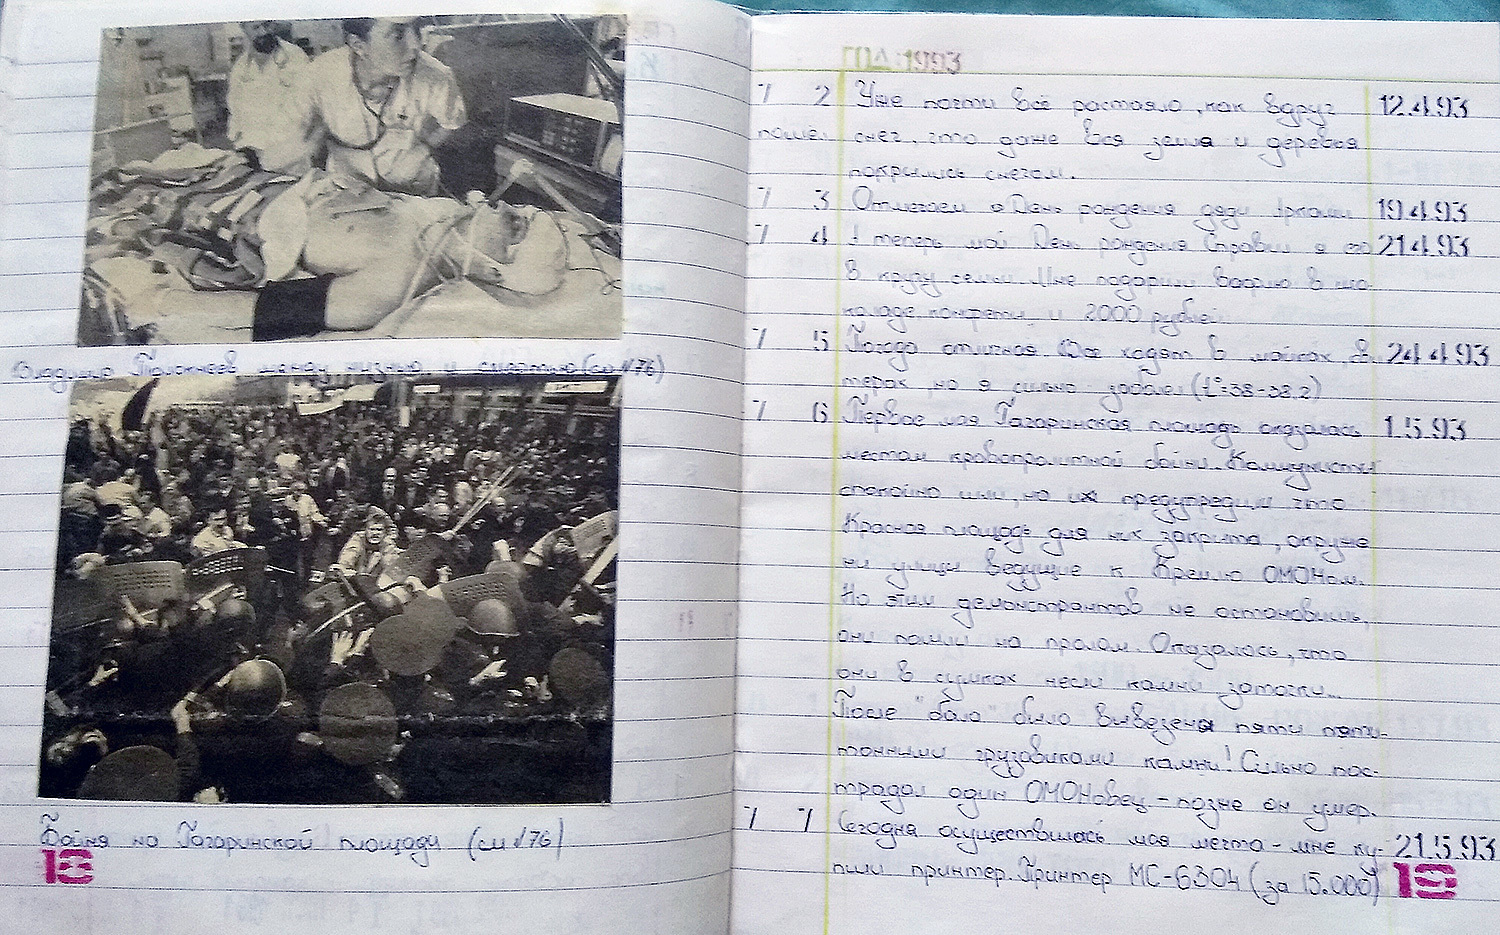 Владимир Толокнеев между жизнью и смертью (см №76)
Бойня на Гагаринской площади (см №76)
18
ГОД: 1993
7 2 Уже почти всё растаяло, как вдруг 12.4.93
пошел снег, что даже вся земля и деревья
покрылись снегом.
7 3 Отмечаем День рождения дяди Аркаши 19.4.93
7 4 А теперь мой День рождения Справил я его 21.4.93
в кругу семьи. Мне подарили вафлю в шо-
коладе конфеты и 2000 рублей
7 5 Погода отличная. Все ходят в майках, 24.4.93
но я сильно заболел (t°=38-38,2)
7 6 Первое мая Гагаринская площадь оказалась 1.5.93
местом кровопролитной бойни. Коммунисты
спокойно шли, но их предупредили что
Красная площадь для них закрыта, окруже-
ны улицы ведущие к Кремлю ОМОНом.
Но этим демонстрантов не остановишь,
они пошли на пролом. Оказалось, что
они в сумках несли камни заточки...
После "бала" было вывезена пяти пяти-
тонными грузовиками камни! Сильно пос-
традал один ОМОНовец - позне он умер.
7 7 Сегодня осуществилась моя мечта - мне ку- 21.5.93
пили принтер. Принтер МС-6304 (за 15.000)
19